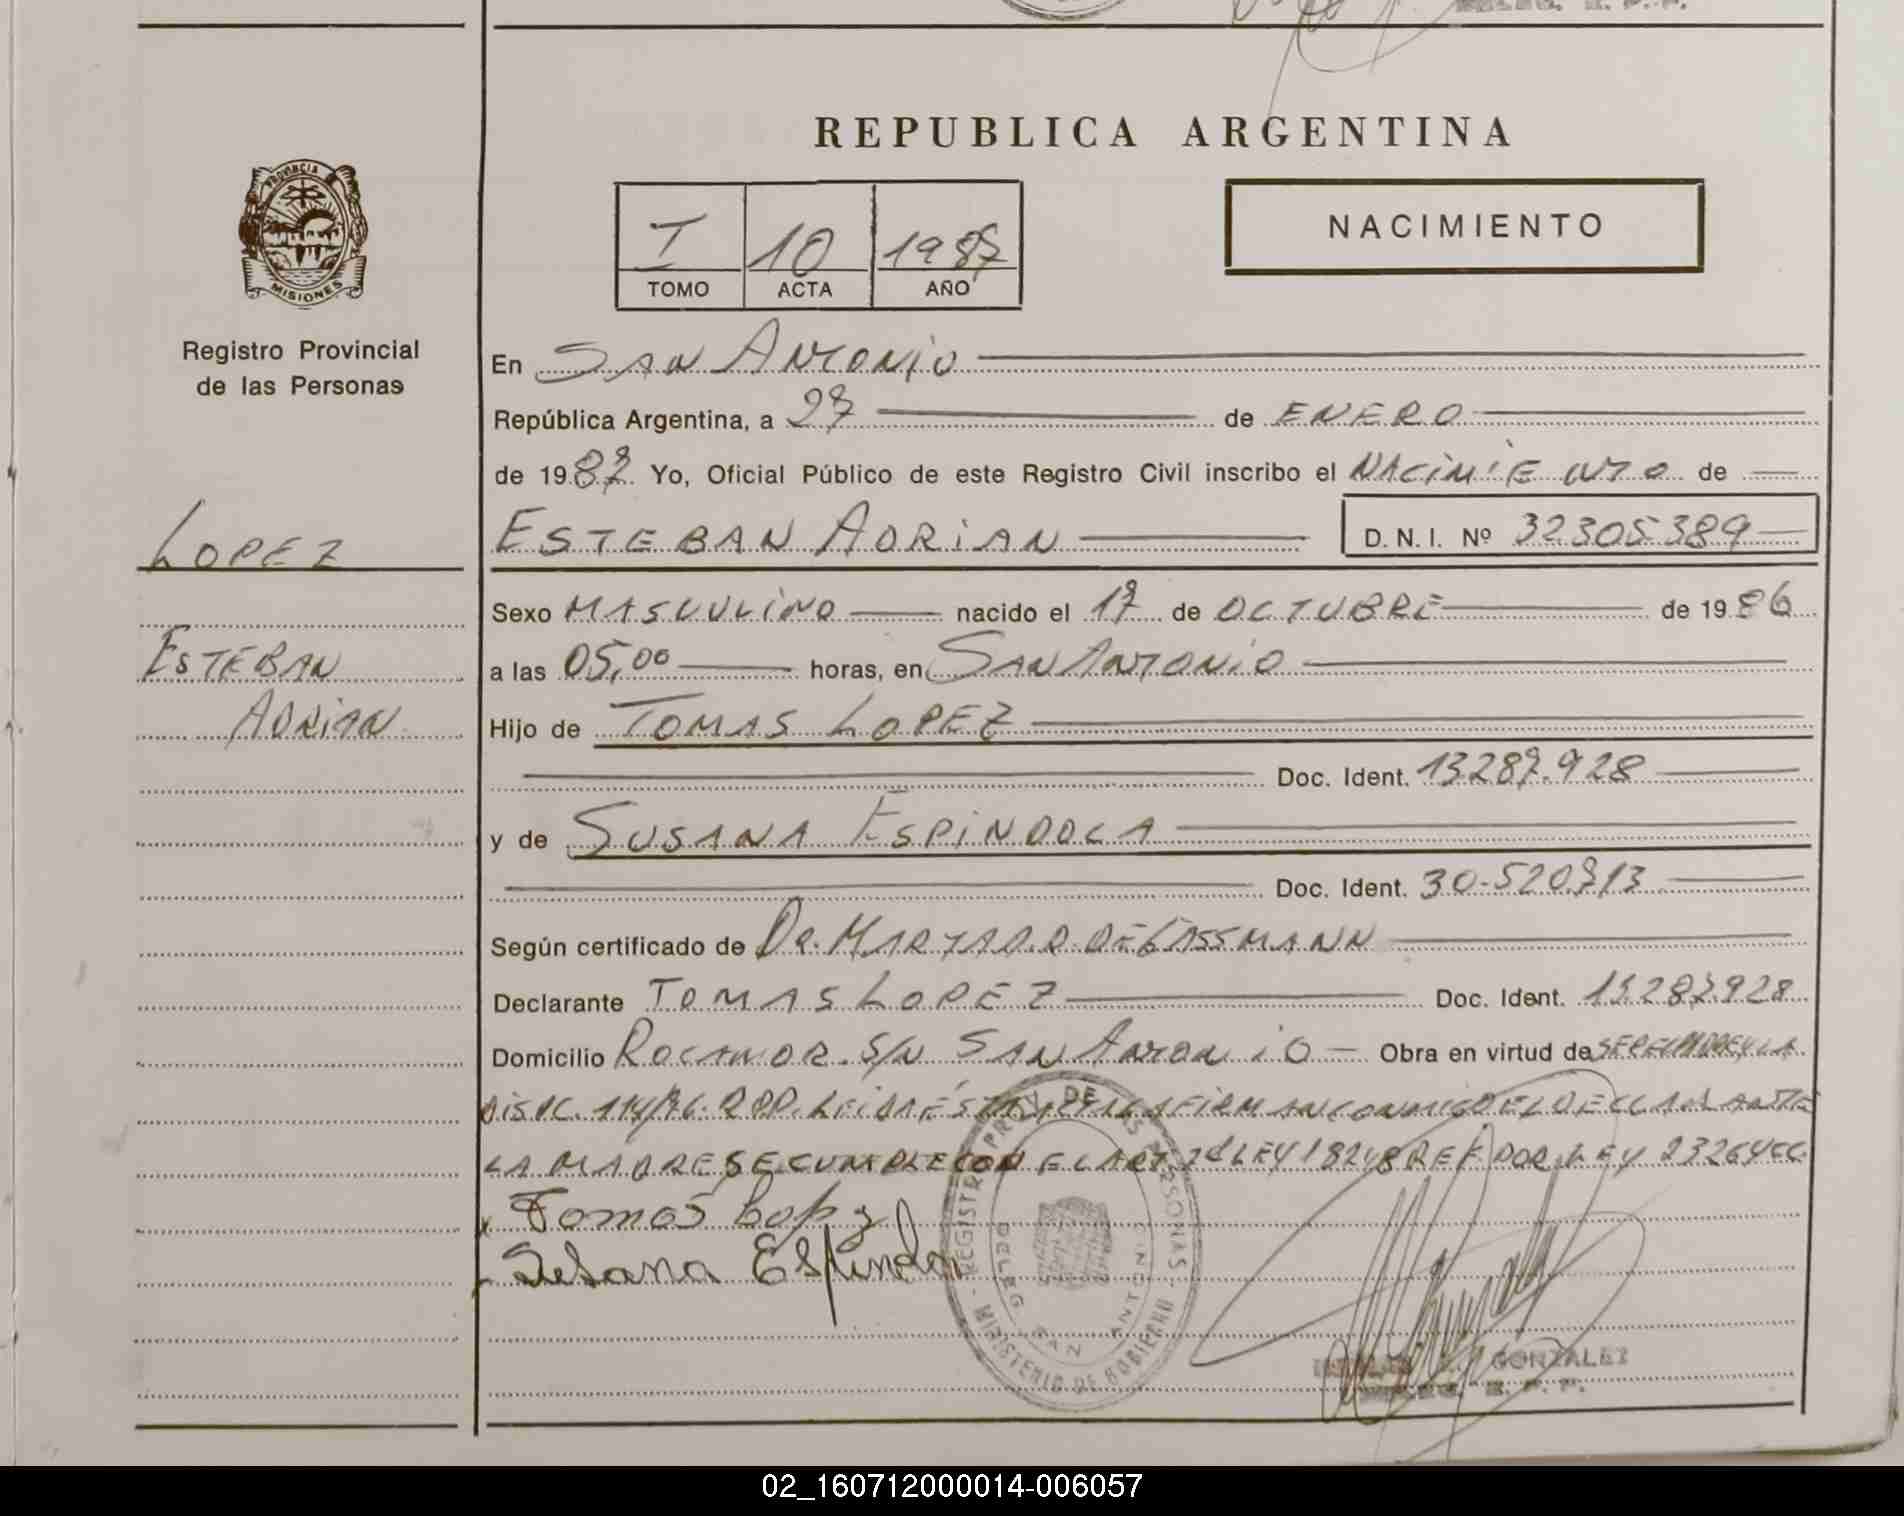 REPUBLICA ARGENTINA
PROVINCIA
MISIONES
Registro Provincial
de las Personas
I 10 1987
TOMO ACTA AÑO
NACIMIENTO
En SAN ANTONIO
República Argentina, a 27 de ENERO
de 1987. Yo, Oficial Público de este Registro Civil inscribo el NACIMIENTO de
LOPEZ
ESTEBAN ADRIAN D.N.I. Nº 32305389
Sexo MASCULINO nacido el 17 de OCTUBRE de 1986
ESTEBAN
a las 05,00 horas, en SAN ANTONIO
ADRIAN
Hijo de TOMAS LOPEZ
Doc. Ident. 13287.928
y de SUSANA ESPINDOLA
Doc. Ident. 30.520.713
Según certificado de DR. MARTA D.R. DE GASSMANN
Declarante TOMAS LOPEZ Doc. Ident. 13.287.928
Domicilio ROCAMOR. S/N SAN ANTONIO Obra en virtud de
DISOC. 114/76. RPP. LEIDA ESTA ACTA LA FIRMAN CONMIGO EL DECLARANTE
LA MADRE SE CUMPLE CON EL ART 2º LEY 18248 REF. POR LEY 23264
Tomas Lopz
Susana Espindola
REGISTRO PROV. DE LAS PERSONAS
MINISTERIO DE GOBIERNO
DELEG. SAN ANTONIO
GONZALEZ
R. P. P.
02_160712000014-006057